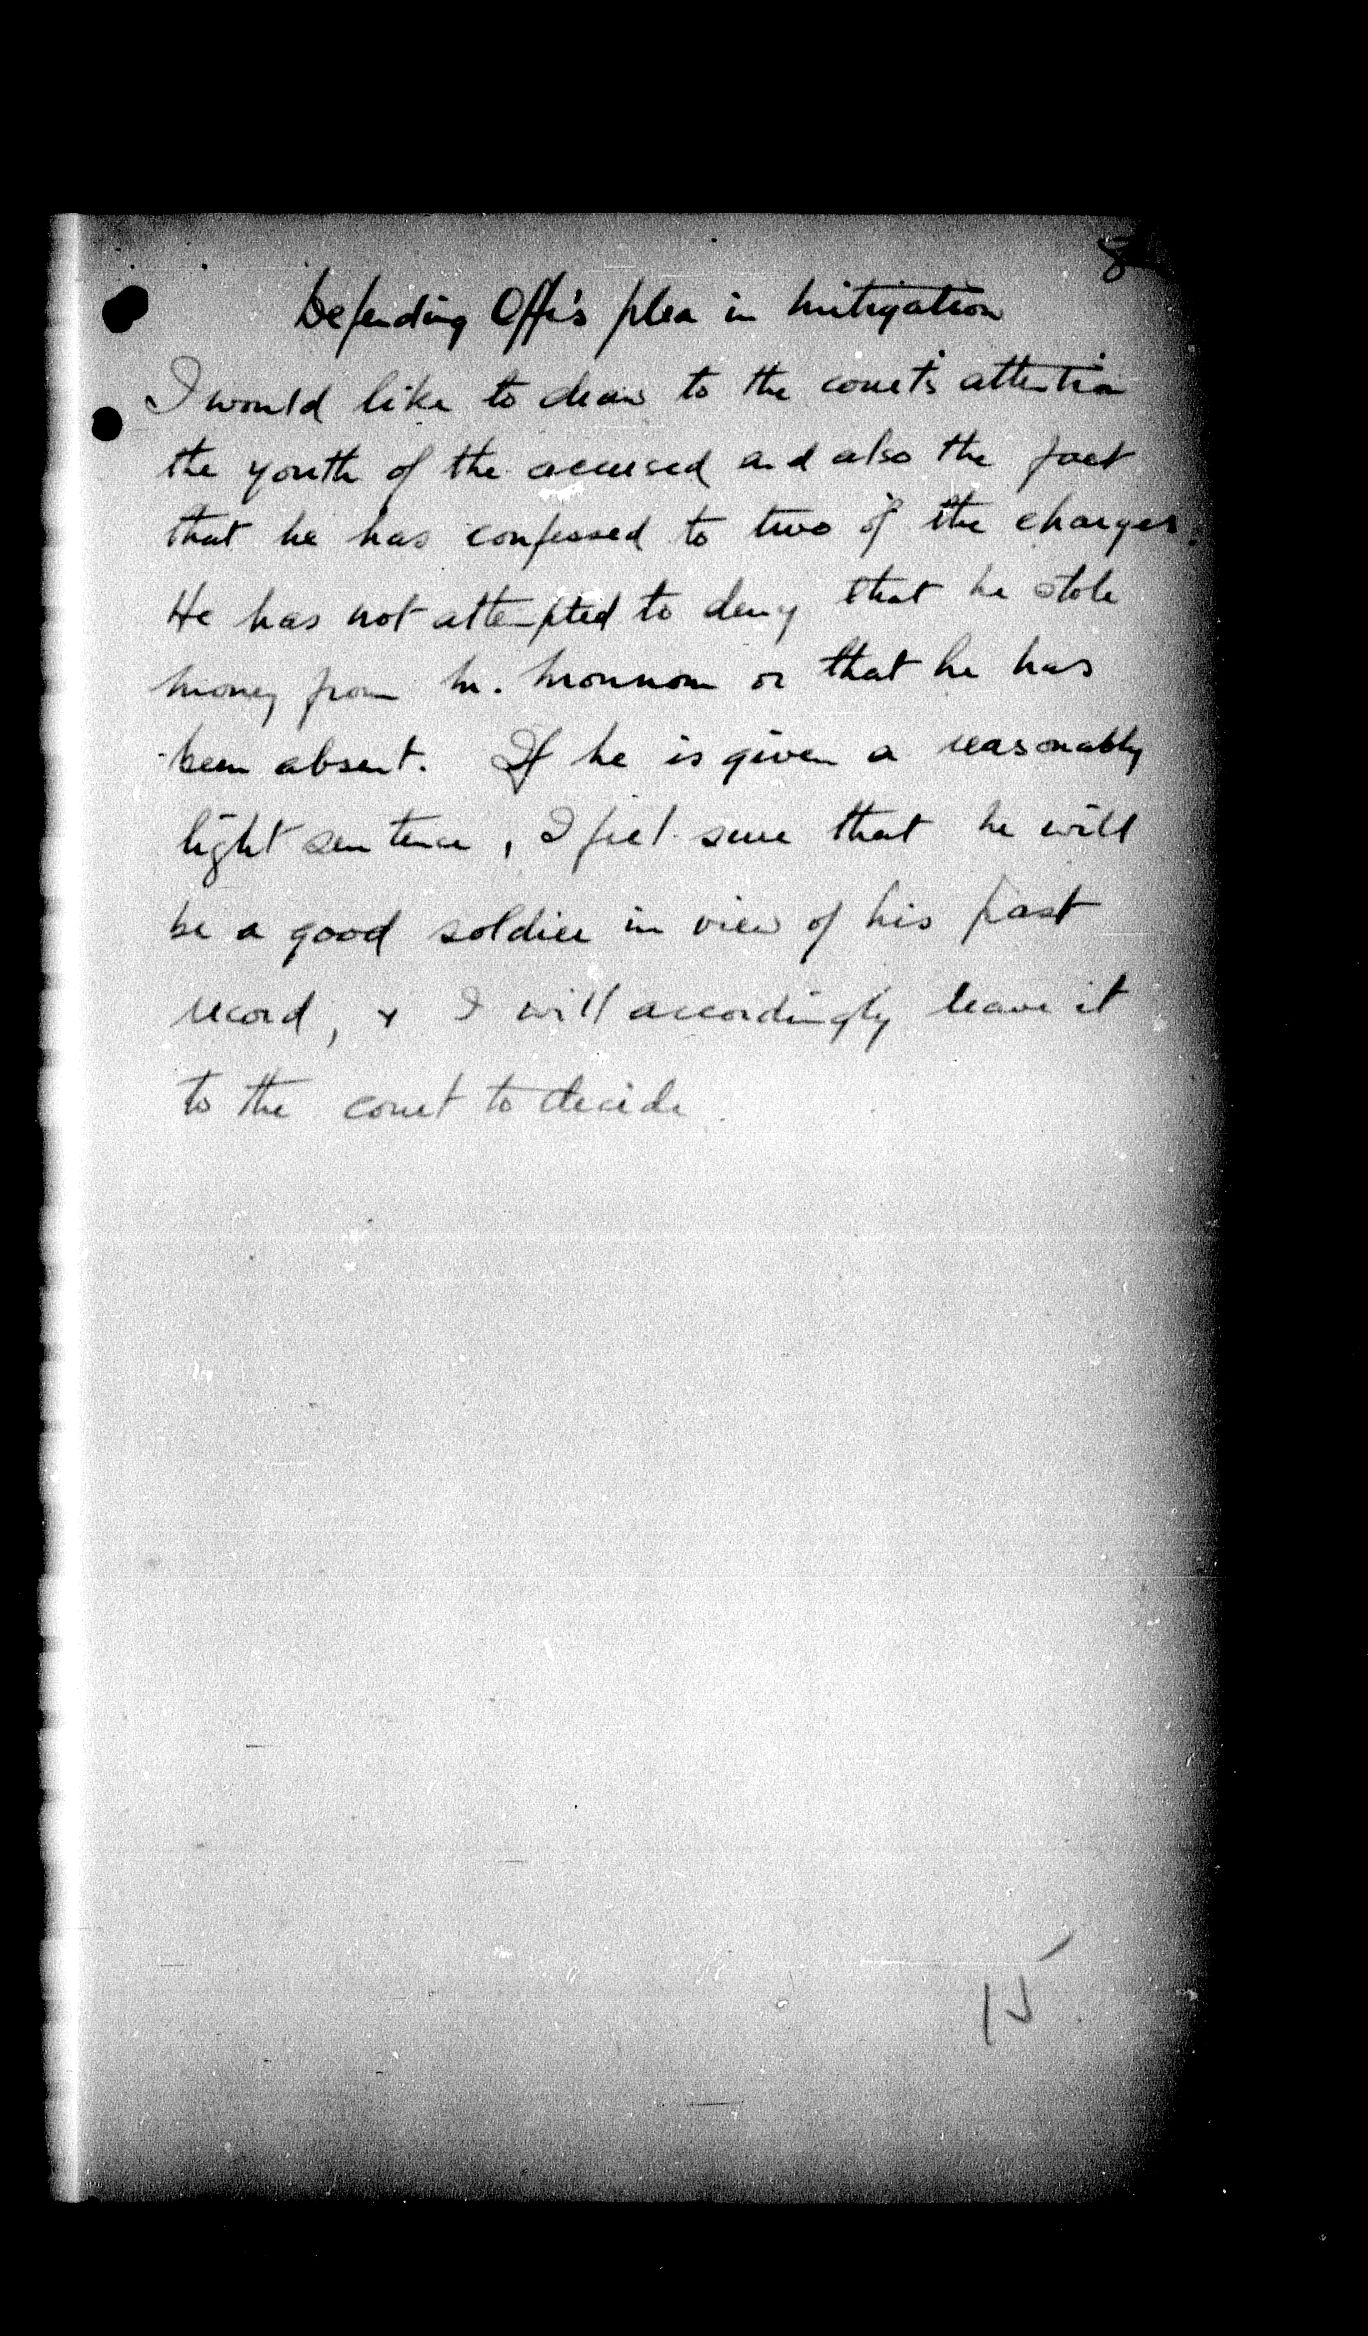 8
Defending Offr's plea in mitigation
I would like to draw to the court's attention
the youth of the accused and also the fact
that he has confessed to two of the charges.
He has not attempted to deny that he stole
money from M. Monnom or that he has
been absent. If he is given a reasonably
light sentence, I feel sure that he will
be a good soldier in view of his past
record, & I will accordingly leave it
to the court to decide.
15